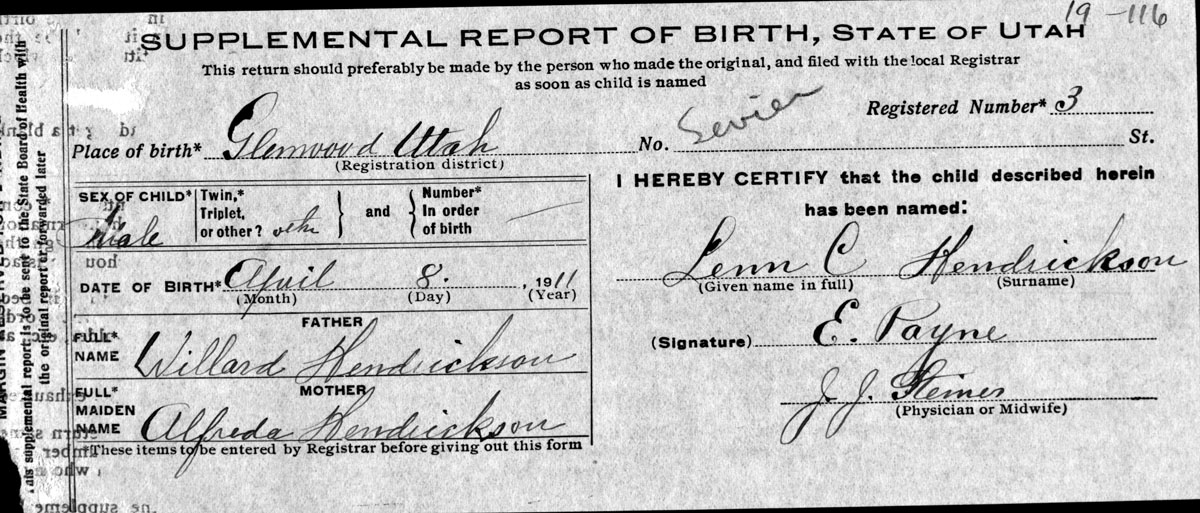 19-116
SUPPLEMENTAL REPORT OF BIRTH, STATE OF UTAH
This return should preferably be made by the person who made the original, and filed with the local Registrar
as soon as child is named
Registered Number* 3
Place of birth* Glenwood Utah No. Sevier St.
(Registration district)
SEX OF CHILD* Male
Twin,*
Triplet,
or other?
and
Number*
In order
of birth
DATE OF BIRTH* April 8. , 1911
(Month) (Day) (Year)
FATHER
FULL*
NAME Willard Hendrickson
MOTHER
FULL*
MAIDEN
NAME Alfreda Hendrickson
*These items to be entered by Registrar before giving out this form
I HEREBY CERTIFY that the child described herein
has been named:
Lenn C Hendrickson
(Given name in full) (Surname)
(Signature) E. Payne
J. J. Steiner
(Physician or Midwife)
This supplemental report is to be sent to the State Board of Health with
the original report or forwarded later